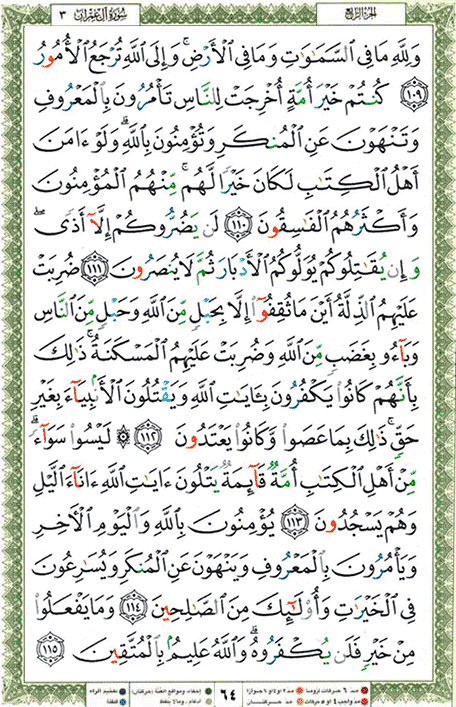 الجزء الرابع سورة آل عمران ٣
وَلِلَّهِ مَا فِي السَّمَٰوَٰتِ وَمَا فِي الْأَرْضِ ۚ وَإِلَى اللَّهِ تُرْجَعُ الْأُمُورُ
١٠٩ كُنتُمْ خَيْرَ أُمَّةٍ أُخْرِجَتْ لِلنَّاسِ تَأْمُرُونَ بِالْمَعْرُوفِ
وَتَنْهَوْنَ عَنِ الْمُنكَرِ وَتُؤْمِنُونَ بِاللَّهِ ۗ وَلَوْ ءَامَنَ
أَهْلُ الْكِتَٰبِ لَكَانَ خَيْرًا لَّهُم ۚ مِّنْهُمُ الْمُؤْمِنُونَ
وَأَكْثَرُهُمُ الْفَٰسِقُونَ ١١٠ لَن يَضُرُّوكُمْ إِلَّآ أَذًى ۖ
وَإِن يُقَٰتِلُوكُمْ يُوَلُّوكُمُ الْأَدْبَارَ ثُمَّ لَا يُنصَرُونَ ١١١ ضُرِبَتْ
عَلَيْهِمُ الذِّلَّةُ أَيْنَ مَا ثُقِفُوٓا۟ إِلَّا بِحَبْلٍ مِّنَ اللَّهِ وَحَبْلٍ مِّنَ النَّاسِ
وَبَآءُو بِغَضَبٍ مِّنَ اللَّهِ وَضُرِبَتْ عَلَيْهِمُ الْمَسْكَنَةُ ۚ ذَٰلِكَ
بِأَنَّهُمْ كَانُوا۟ يَكْفُرُونَ بِـَٔايَٰتِ اللَّهِ وَيَقْتُلُونَ الْأَنۢبِيَآءَ بِغَيْرِ
حَقٍّ ۚ ذَٰلِكَ بِمَا عَصَوا۟ وَّكَانُوا۟ يَعْتَدُونَ ١١٢ ۞ لَيْسُوا۟ سَوَآءً ۗ
مِّنْ أَهْلِ الْكِتَٰبِ أُمَّةٌ قَآئِمَةٌ يَتْلُونَ ءَايَٰتِ اللَّهِ ءَانَآءَ الَّيْلِ
وَهُمْ يَسْجُدُونَ ١١٣ يُؤْمِنُونَ بِاللَّهِ وَالْيَوْمِ الْءَاخِرِ
وَيَأْمُرُونَ بِالْمَعْرُوفِ وَيَنْهَوْنَ عَنِ الْمُنكَرِ وَيُسَٰرِعُونَ
فِي الْخَيْرَٰتِ وَأُو۟لَٰٓئِكَ مِنَ الصَّٰلِحِينَ ١١٤ وَمَا يَفْعَلُوا۟
مِنْ خَيْرٍ فَلَن يُكْفَرُوهُ ۗ وَاللَّهُ عَلِيمٌۢ بِالْمُتَّقِينَ ١١٥
مد ٦ حركات لزوما مد ٢ أو ٤ أو ٦ جوازا إخفاء، ومواقع الغنة (حركتان) تفخيم الراء
مد واجب ٤ أو ٥ حركات مد حركتان إدغام، وما لا يلفظ قلقلة
٦٤